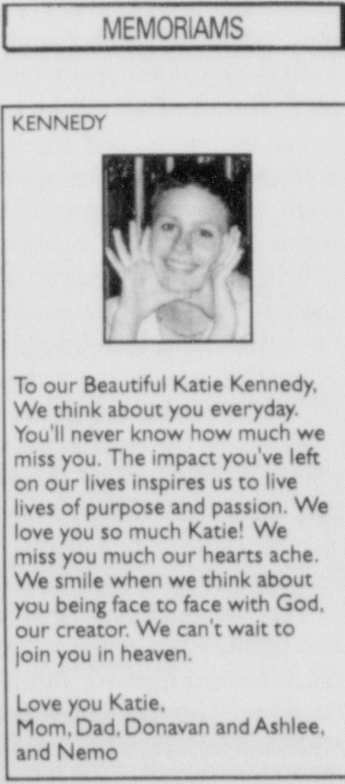 MEMORIAMS
KENNEDY
To our Beautiful Katie Kennedy,
We think about you everyday.
You'll never know how much we
miss you. The impact you've left
on our lives inspires us to live
lives of purpose and passion. We
love you so much Katie! We
miss you much our hearts ache.
We smile when we think about
you being face to face with God,
our creator. We can't wait to
join you in heaven.
Love you Katie,
Mom, Dad, Donavan and Ashlee,
and Nemo